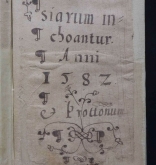 ¶ siarum in
¶ choantur.
¶ Anni
1582
¶ &
¶ Prottonum